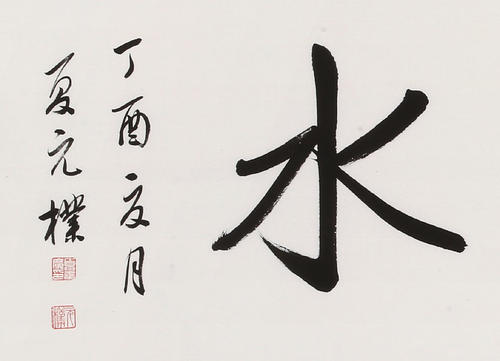 水
丁酉夏月
夏元樸